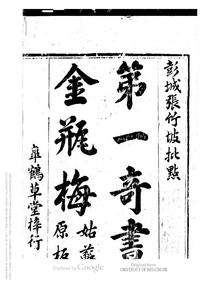 彭城張竹坡批點
第一奇書
金瓶梅
姑蘇
原板
皋鶴草堂梓行
Digitized by Google
Original from
UNIVERSITY OF MICHIGAN